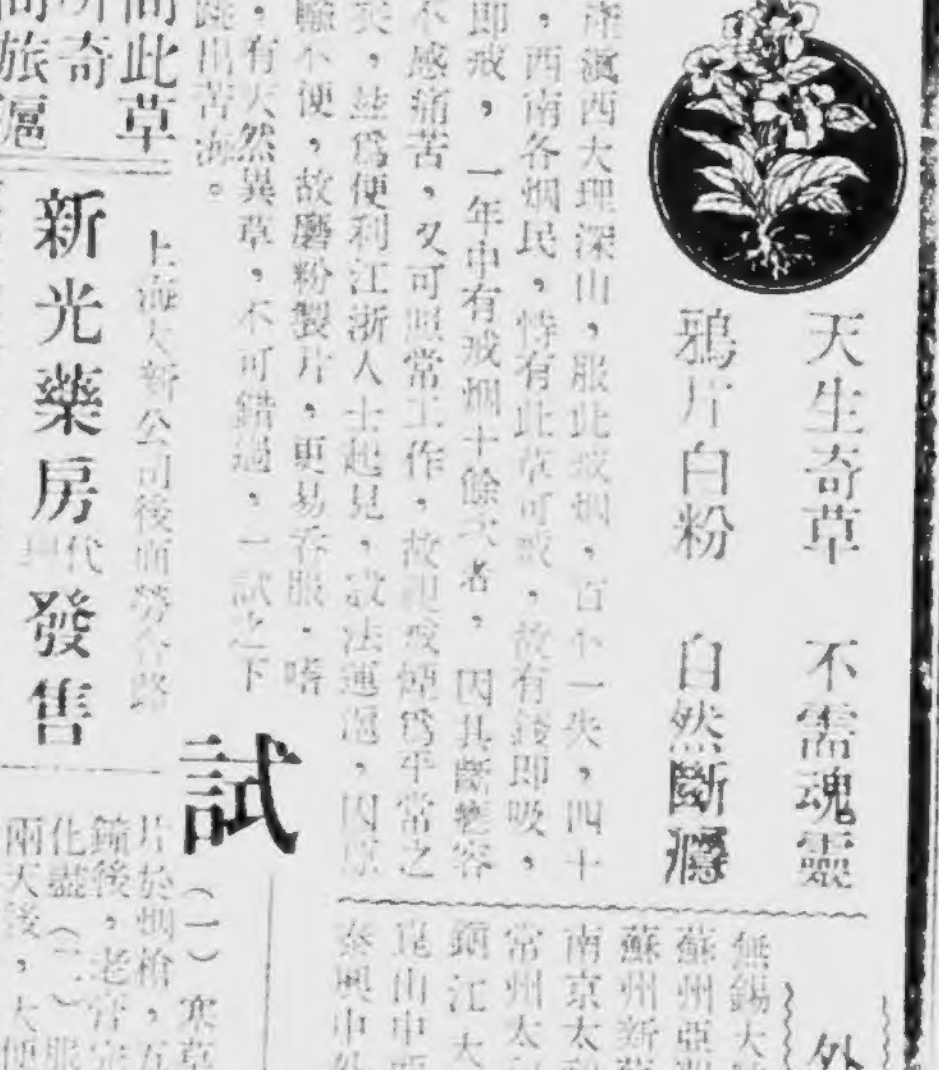 天生奇草　不需魂靈
鴉片白粉　自然斷癮
產滇西大理深山，服此戒烟，百不一失，四十
，西南各烟民，恃有此草可戒，故有錢即吸，
即戒，一年中有戒烟十餘次者，因其斷癮容
不感痛苦，又可照常工作，故視戒煙爲平常之
矣，茲爲便利江浙人士起見，設法運滬，因原
輸不便，故磨粉製片，更易吞服，嗜
，有天然異草，不可錯過，一試之下
跳出苦海。
問此草
所奇
問旅滬
上海大新公司後面勞合路
新光藥房代理發售
試
（一）寒草
片於烟槍，五
鐘後，老
化盡（二）服
兩天後，大便
外
無錫大
蘇州亞
蘇州新
南京太
常州太
鎮江大
崑山中
泰興中外